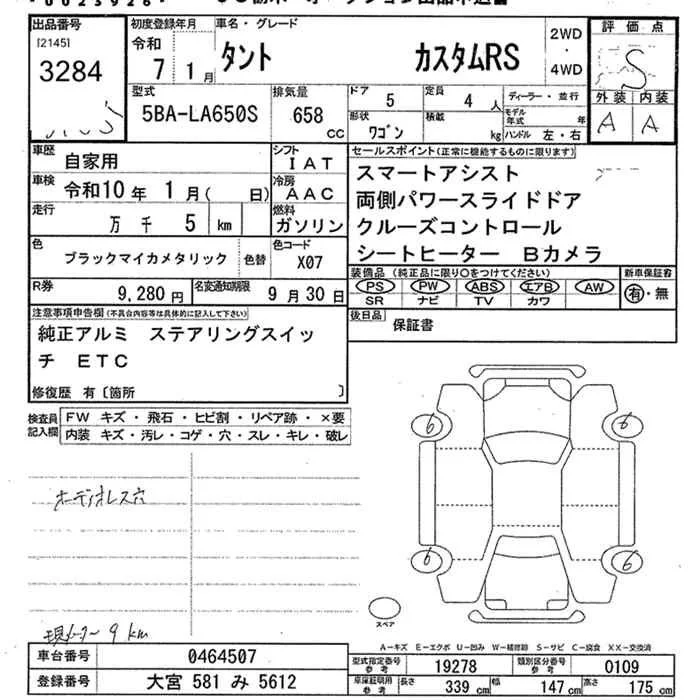 出品番号
[2145]
3284
初度登録年月
令和
7 1月
車名・グレード
タント カスタムRS
2WD
・
4WD
評価点
S
外装 内装
A A
型式
5BA-LA650S
排気量
658
cc
ドア 5
定員 4人
ディーラー・並行
形状 ワゴン
積載 kg
モデル年式 年
ハンドル 左・右
車歴 自家用
シフト IAT
車検 令和10年 1月( 日)
冷房 AAC
走行 万 千 5 km
燃料 ガソリン
色 ブラックマイカメタリック 色替
色コード X07
R券 9,280円
名変通知期限 9月30日
セールスポイント(正常に機能するものに限ります)
スマートアシスト
両側パワースライドドア
クルーズコントロール
シートヒーター Bカメラ
装備品 (純正品に限り○をつけてください)
PS PW ABS エアB AW
SR ナビ TV カワ
新車保証書
有・無
後日品 保証書
注意事項申告欄(不具合内容等は具体的に記入して下さい)
純正アルミ ステアリングスイッ
チ ETC
修復歴 有〔箇所 〕
検査員記入欄
FW キズ・飛石・ヒビ割・リペア跡・×要
内装 キズ・汚レ・コゲ・穴・スレ・キレ・破レ
オーディオレス穴
6 6
6 6
スペア
9 km
A-キズ E-エクボ U-凹み W-補修跡 S-サビ C-腐食 XX-交換済
車台番号 0464507
登録番号 大宮 581 み 5612
型式指定番号 参考 19278
類別区分番号 参考 0109
車庫証明用 参考 長さ 339 cm 幅 147 cm 高さ 175 cm